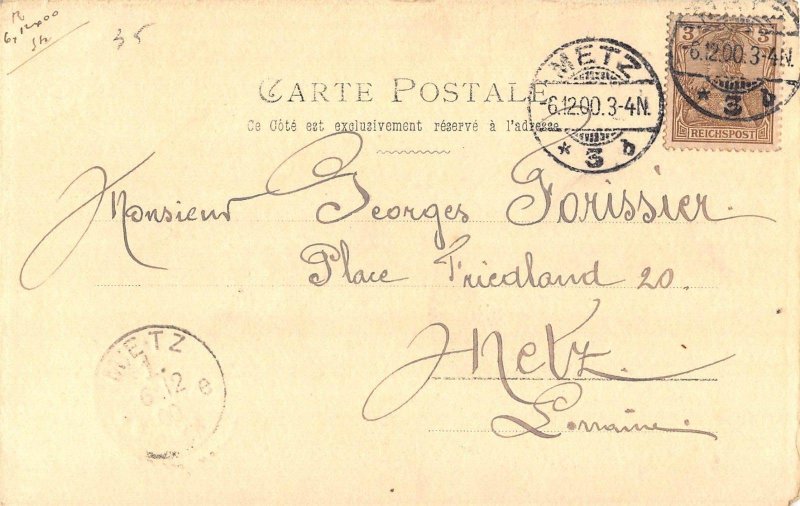 6.12.00
35
METZ
-6.12.00.3-4N.
* 3 b
-6.12.00.3-4N.
* 3 b
3 3
REICHSPOST
CARTE POSTALE
Ce Côté est exclusivement réservé à l'adresse
Monsieur Georges Forissier.
Place Friedland 20.
Metz.
Lorraine.
METZ
1.
6.12
e